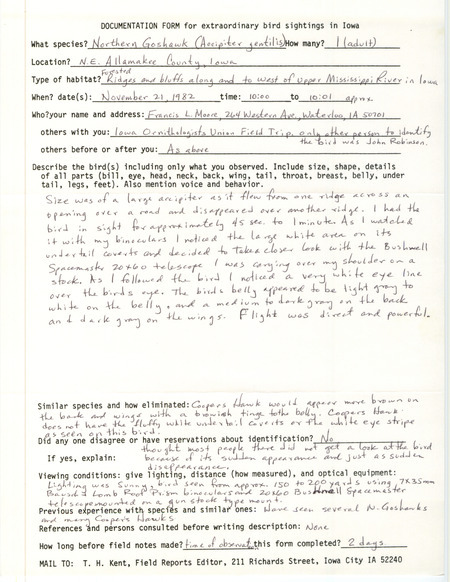 DOCUMENTATION FORM for extraordinary bird sightings in Iowa
What species? Northern Goshawk (Accipiter gentilis) How many? 1 (adult)
Location? N.E. Allamakee County, Iowa
Type of habitat? Forested Ridges and bluffs along and to west of upper Mississippi River in Iowa
When? date(s): November 21, 1982 time: 10:00 to 10:01 approx.
Who? your name and address: Francis L. Moore, 264 Western Ave, Waterloo, IA 50701
others with you: Iowa Ornithologists Union Field Trip. only other person to identify
the bird was John Robinson.
others before or after you: As above
Describe the bird(s) including only what you observed. Include size, shape, details
of all parts (bill, eye, head, neck, back, wing, tail, throat, breast, belly, under
tail, legs, feet). Also mention voice and behavior.
Size was of a large accipiter as it flew from one ridge across an
opening over a road and disappeared over another ridge. I had the
bird in sight for approximately 45 sec. to 1 minute. As I watched
it with my binoculars I noticed the large white area on its
undertail coverts and decided to take a closer look with the Bushnell
Spacemaster 20x60 telescope I was carrying over my shoulder on a
stock. As I followed the bird I noticed a very white eye line
over the birds eye. The birds belly appeared to be light gray to
white on the belly, and a medium to dark gray on the back
and dark gray on the wings. Flight was direct and powerful.
Similar species and how eliminated: Coopers Hawk would appear more brown on
the back and wings with a brownish tinge to the belly. Coopers Hawk
does not have the fluffy white undertail coverts or the white eye stripe
as seen on this bird.
Did any one disagree or have reservations about identification? No
If yes, explain: thought most people there did not get a look at the bird
because of its sudden appearance and just as sudden
disappearance.
Viewing conditions: give lighting, distance (how measured), and optical equipment:
Lighting was Sunny, bird seen from approx. 150 to 200 yards using 7x35mm
Bausch & Lomb Roof Prism binoculars and 20x60 Bushnell Spacemaster
telescope mounted on a gun stock type mount.
Previous experience with species and similar ones: Have seen several N. Goshawks
and many Coopers Hawks
References and persons consulted before writing description: None
How long before field notes made? time of observation this form completed? 2 days
MAIL TO: T. H. Kent, Field Reports Editor, 211 Richards Street, Iowa City IA 52240